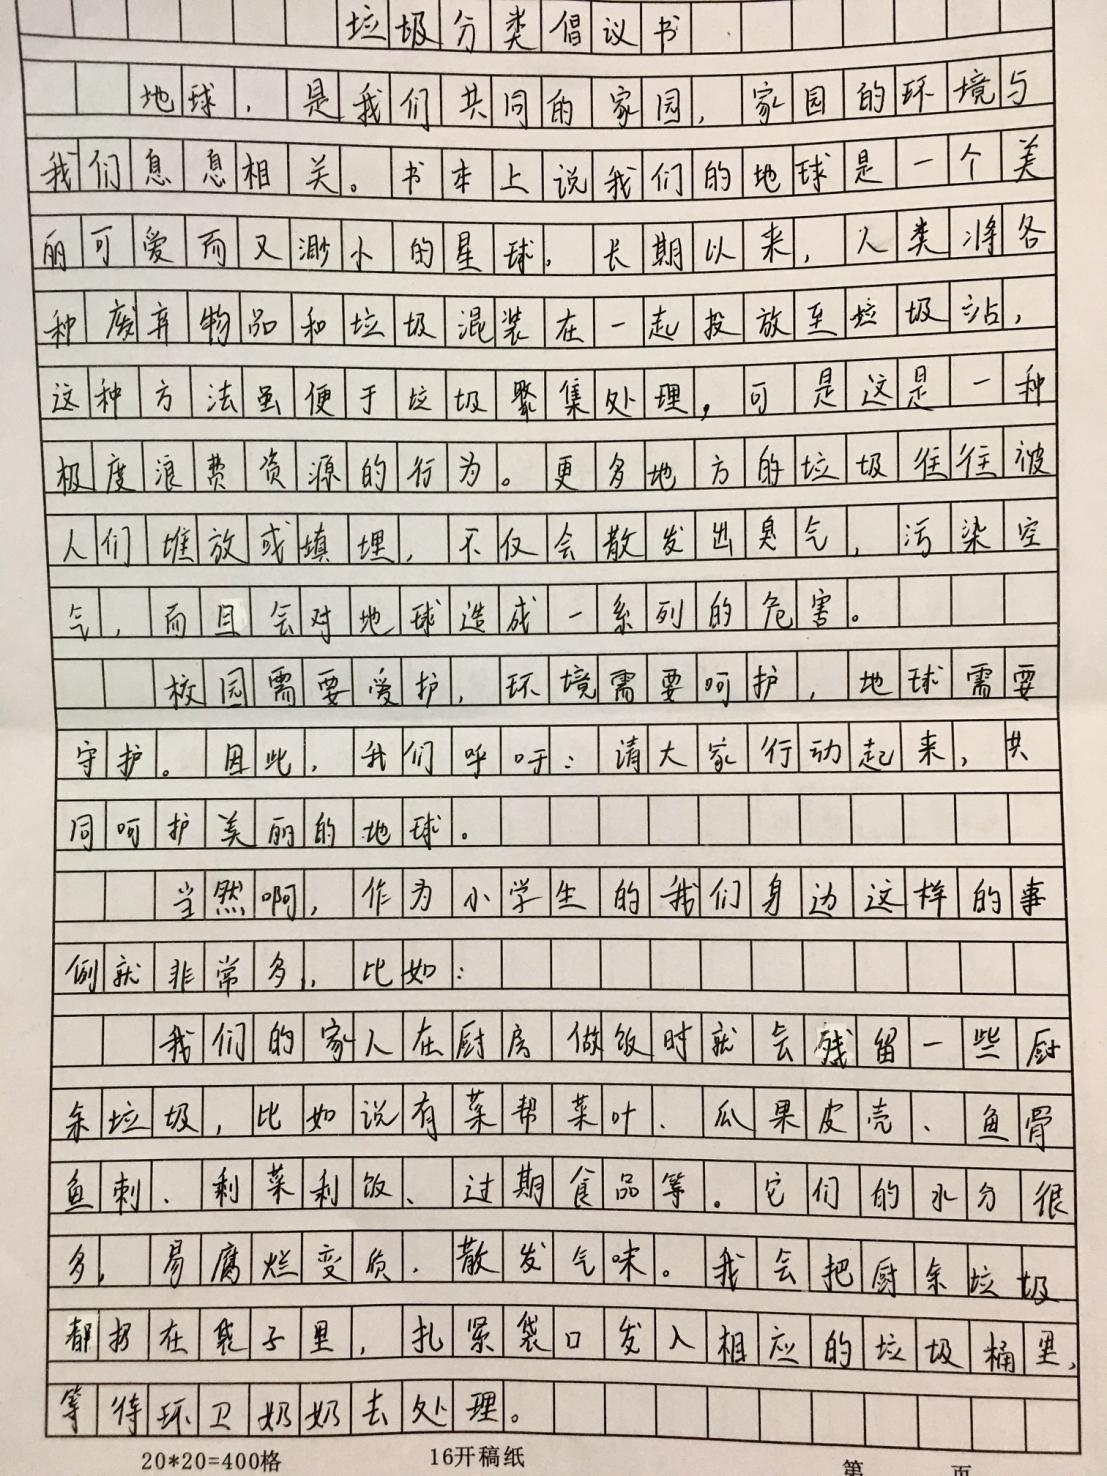 垃圾分类倡议书
地球，是我们共同的家园，家园的环境与
我们息息相关。书本上说我们的地球是一个美
丽可爱而又渺小的星球，长期以来，人类将各
种废弃物品和垃圾混装在一起投放至垃圾站，
这种方法虽便于垃圾聚集处理，可是这是一种
极度浪费资源的行为。更多地方的垃圾往往被
人们堆放或填埋，不仅会散发出臭气，污染空
气，而且会对地球造成一系列的危害。
校园需要爱护，环境需要呵护，地球需要
守护。因此，我们呼吁：请大家行动起来，共
同呵护美丽的地球。
当然啊，作为小学生的我们身边这样的事
例就非常多，比如：
我们的家人在厨房做饭时就会残留一些厨
余垃圾，比如说有菜帮菜叶、瓜果皮壳、鱼骨
鱼刺、剩菜剩饭、过期食品等。它们的水分很
多，易腐烂变质，散发气味。我会把厨余垃圾
都扔在袋子里，扎紧袋口发入相应的垃圾桶里，
等待环卫奶奶去处理。
20*20=400格 16开稿纸 第 页